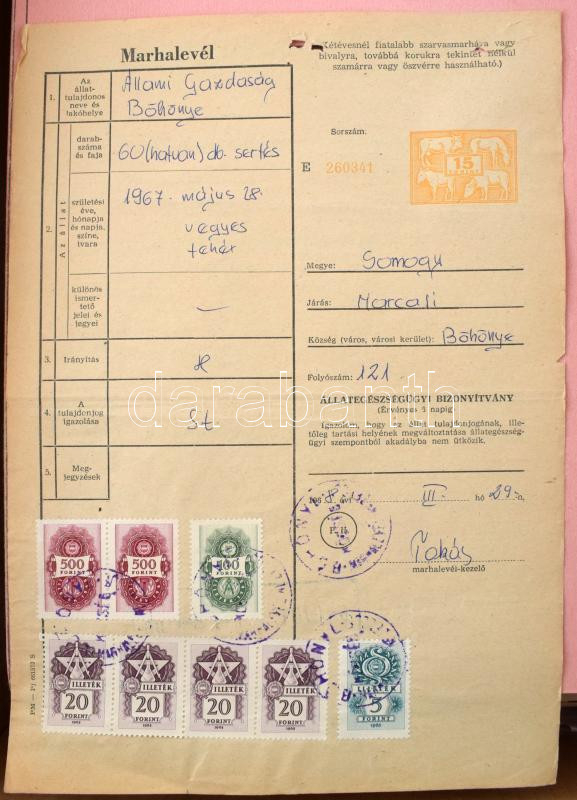 Marhalevél
1. Az állat-
tulajdonos
neve és
lakóhelye
Állami Gazdaság
Böhönye
2. Az állat
darab-
száma
és faja
60 (hatvan) db. sertés
születési
éve,
hónapja
és napja,
színe,
ivara
1967. május 28.
vegyes
fehér
különös
ismer-
tető
jelei és
jegyei
—
3. Irányítás
4. A
tulajdonjog
igazolása
St
5. Meg-
jegyzések
Kétévesnél fiatalabb szarvasmarhára vagy
bivalyra, továbbá korukra tekintet nélkül
szamárra vagy öszvérre használható.)
Sorszám.
E 260341
15
FORINT
Megye: Somogy
Járás: Marcali
Község (város, városi kerület): Böhönye
Folyószám: 121.
ÁLLATEGÉSZSÉGÜGYI BIZONYÍTVÁNY
Igazolom, hogy az állat tulajdonjogának, ille-
tőleg tartási helyének megváltoztatása állategészség-
ügyi szempontból akadályba nem ütközik.
196 évi III. hó 29-n.
P. H.
Takás
marhalevél-kezelő
500
FORINT
500
FORINT
100
FORINT
ILLETÉK
20
FORINT
ILLETÉK
20
FORINT
ILLETÉK
20
FORINT
ILLETÉK
20
FORINT
ILLETÉK
5
FORINT
darabanth